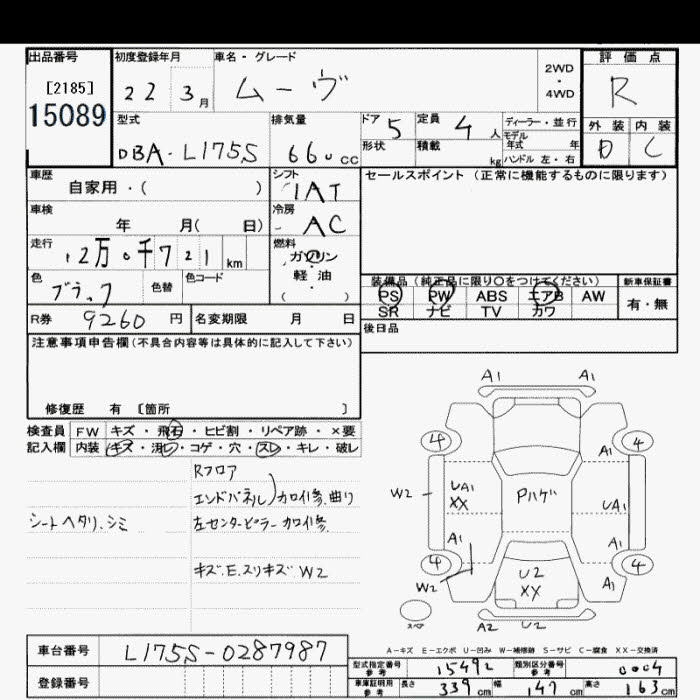 出品番号
[2185]
15089
初度登録年月
22 3月
車名・グレード
ムーヴ
2WD
・
4WD
評価点
R
外装 内装
D C
型式
DBA-L175S
排気量
660cc
ドア 5
定員 4人
形状
積載
kg
ディーラー・並行
モデル
年式 年
ハンドル 左・右
車歴
自家用・( )
シフト
IAT
車検
年 月( 日)
冷房
AC
走行
12万0千721km
燃料
ガソリン
・
軽油
( )
色
ブラック
色替
色コード
R券 9260円
名変期限 月 日
セールスポイント(正常に機能するものに限ります)
装備品(純正品に限り○をつけてください)
PS PW ABS エアB AW
SR ナビ TV カワ
新車保証書
有・無
後日品
注意事項申告欄(不具合内容等は具体的に記入して下さい)
修復歴 有 [箇所 ]
検査員
記入欄
FW キズ・飛石・ヒビ割・リペア跡・×要
内装 キズ・汚レ・コゲ・穴・スレ・キレ・破レ
シートヘタリ.シミ
Rフロア
エンドパネル)カロイ修.曲り
左センターピラー カロイ修.
キズ.E.スリキズ W2
A1 A1
4 4
A1
W2
UA1
XX
Pハゲ
UA1
A1 A1
4 4
W2
U2
XX
A1
スペア
A2 U2
A-キズ E-エクボ U-凹み W-補修跡 S-サビ C-腐食 XX-交換済
車台番号 L175S-0287987
登録番号
型式指定番号
参考
15492
類別区分番号
参考
0004
車庫証明用
参考
長さ 339cm 幅 147cm 高さ 163cm